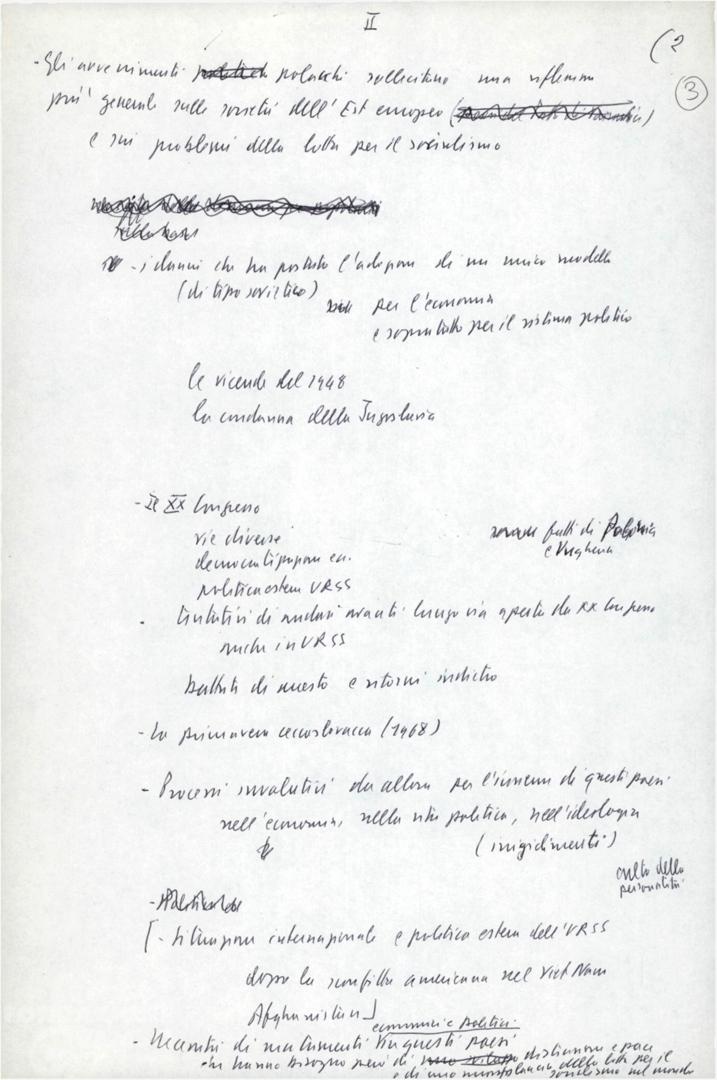 II
(2
3
- Gli avvenimenti polacchi sollecitano una riflessione
più generale sulle società dell'Est europeo
e sui problemi della lotta per il socialismo
- i danni che ha portato l'adozione di un unico modello
(di tipo sovietico)
per l'economia
e soprattutto per il sistema politico
le vicende del 1948
la condanna della Jugoslavia
- Il XX Congresso
vie diverse
democratizzazione
politica estera URSS
fatti di Polonia
e Ungheria
- tentativi di andare avanti lungo via aperta da XX Congresso
anche in URSS
battute di arresto e ritorni indietro
- La primavera cecoslovacca (1968)
- Processi involutivi da allora per l'insieme di questi paesi
nell'economia, nella vita politica, nell'ideologia
(irrigidimenti)
culto della
personalità
[- Situazione internazionale e politica estera dell'URSS
dopo la sconfitta americana nel Viet Nam
Afghanistan]
economici e politici
- Necessità di mutamenti in questi paesi
che hanno bisogno però di distensione e pace
e di una della lotta per il
socialismo nel mondo